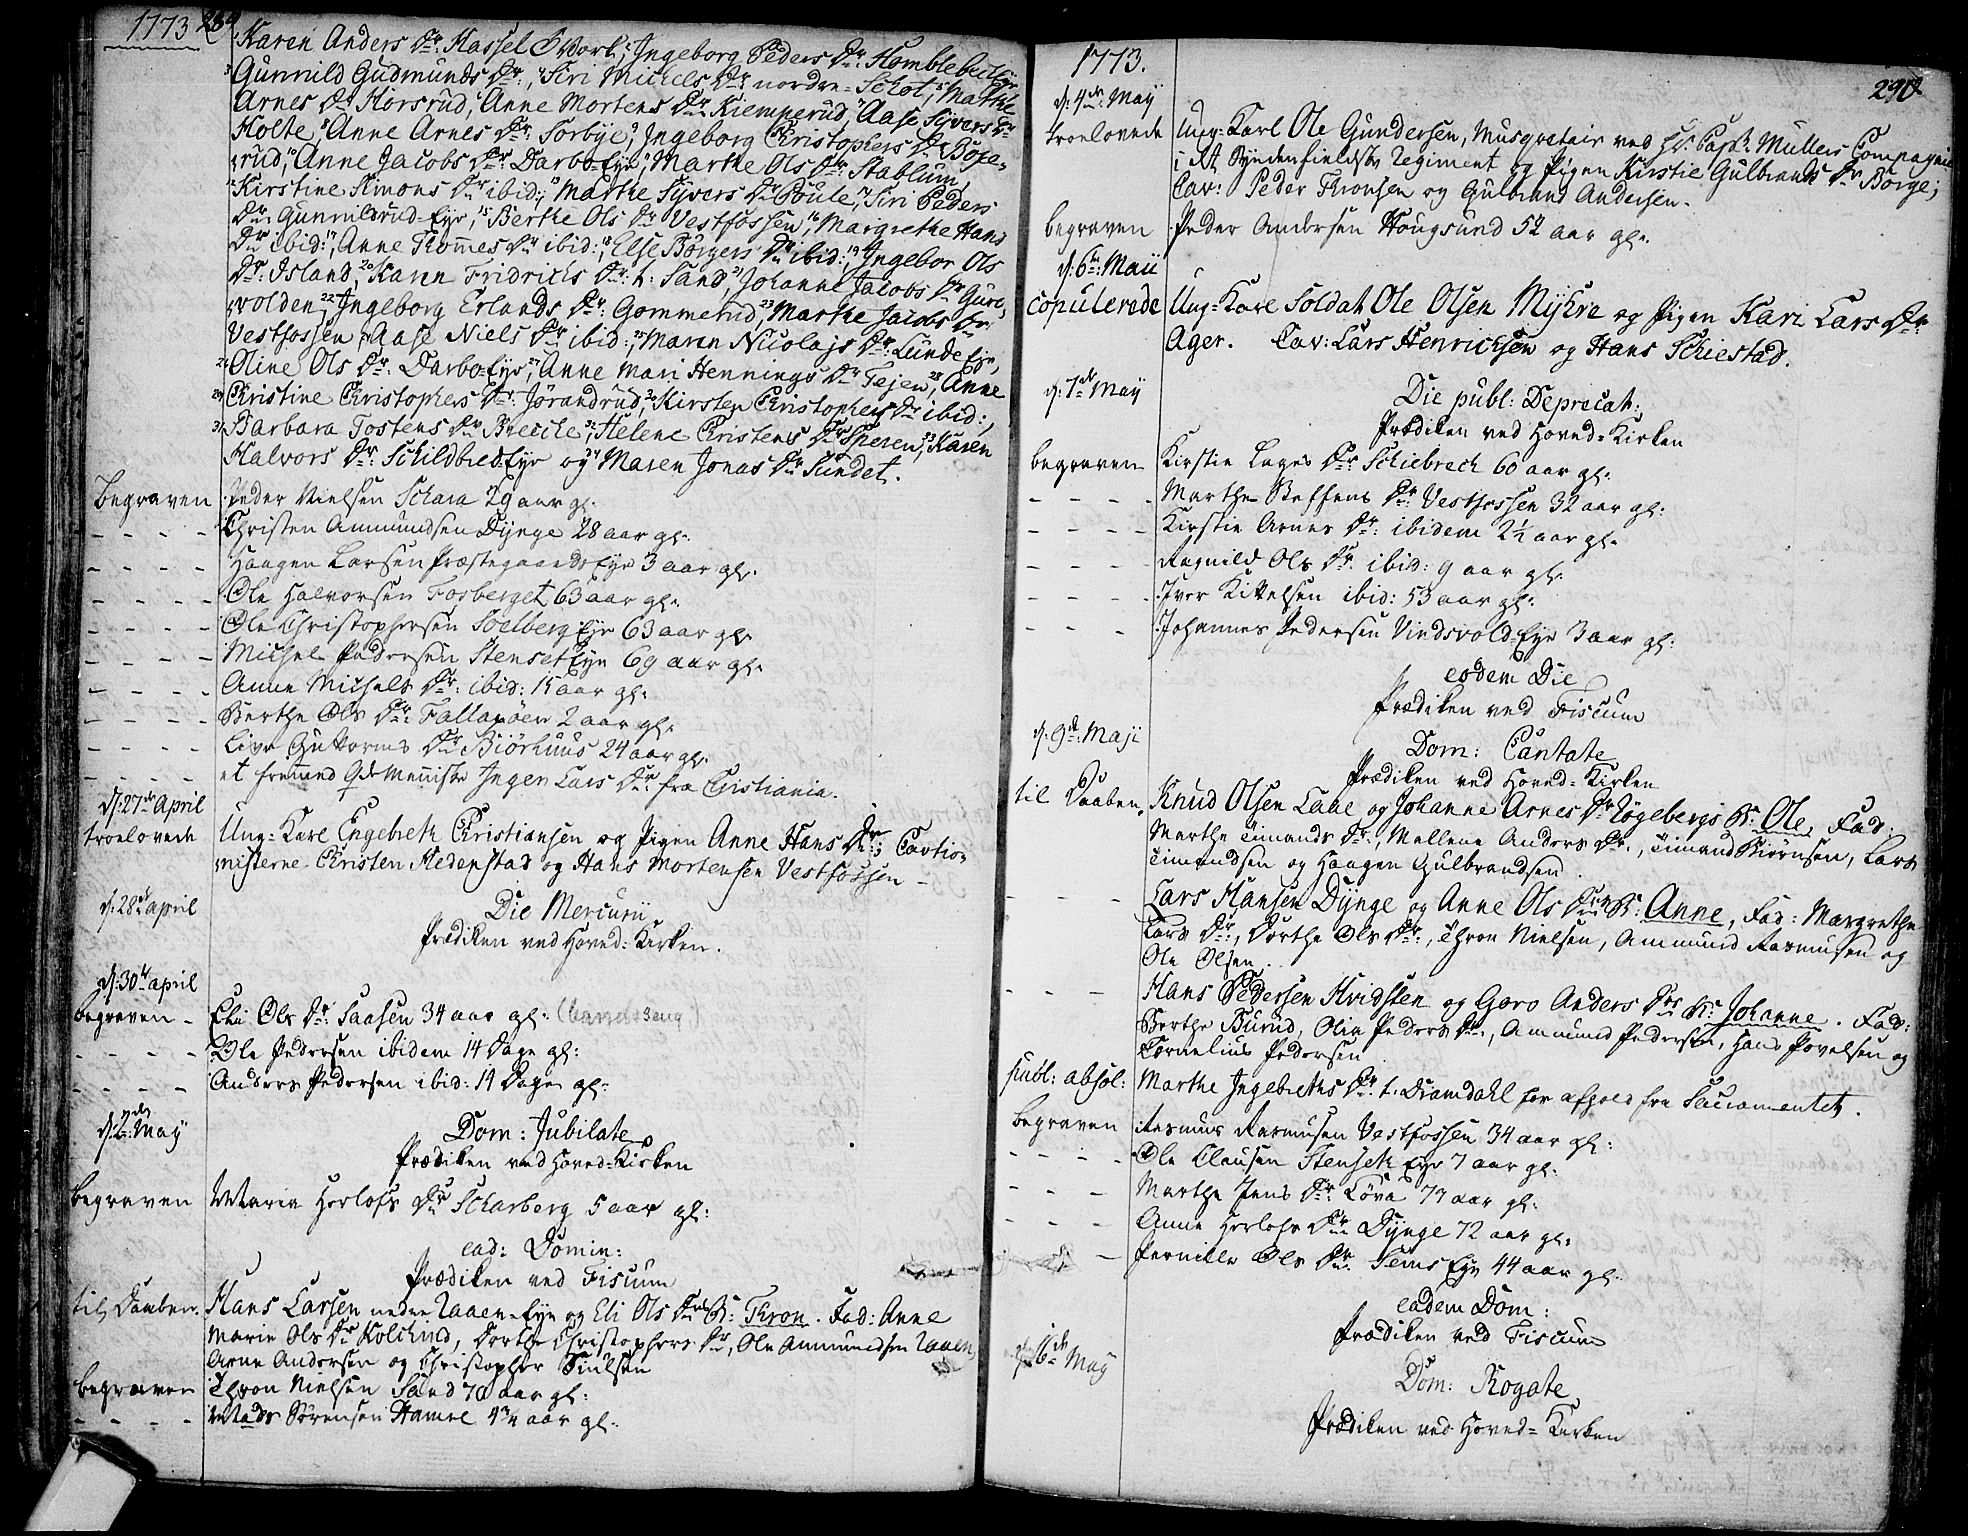 1773 289
Karen Anders Dr: Hassel Værk, Ingeborg Peders Dr: Homblebech Eye
Gunnild Gudmunds Dr:, Siri Michels Dr: nordre Schot, Marthe
Arnes Dr Horsrud, Anne Mortens Dr Kiemperud, Aase Syvers Dr
Holte, Anne Arnes Dr: Torbye, Ingeborg Christophers Dr Bose-
rud, Anne Jacobs Dr: Darbo-Eye, Marthe Ols Dr Stablum,
Kirstine Simons Dr ibid:, Marthe Syvers Dr Poule, Siri Peders
Dr: Gunnildrud-Eye, Berthe Ols Dr Vestfossen, Margrethe Hans
Dr ibid:, Anne Thommes Dr ibid:, Else Børgers Dr ibid:, Ingebor Ols
Dr: Island, Karen Fridrichs Dr: t. Sand, Johanne Jacobs Dr Gure-
volden, Ingeborg Erlands Dr: Gommerud, Marthe Jacobs Dr
Vestfossen, Aase Niels Dr ibid:, Maren Nicolajs Dr: Lunde Eye,
Oline Ols Dr: Darbo-Eye, Anne Mari Hennings Dr Tejen, Anne
Christine Christophers Dr: Jørandrud, Kirsten Christophers Dr ibid:,
Barbara Tostens Dr Brecke, Helene Christens Dr Speren, Karen
Halvors Dr: Schildbred-Eye og Maren Jonas Dr Sundet.
begraven Peder Nielsen Schara 29 aar gl.
- - - - Christen Ammundsen Dynge 28 aar gl.
- - - - Haagen Larsen Præstegaards Eye 3 aar gl.
- - - - Ole Halvorsen Fosberget 63 aar gl.
- - - - Ole Christophersen Soelberg Eye 63 aar gl.
- - - - Michel Pedersen Stenset Eye 69 aar gl.
- - - - Anne Michels Dr: ibid: 15 aar gl.
- - - - Berthe Ols Dr: Fallaøen 2 aar gl.
- - - - Live Guttorms Dr Biørhuus 24 aar gl.
- - - - et fremmed Qde Menniske Ingen Lars Dr fra Christiania.
d: 27de April
troelovede Ung-Karl Engebreth Christiansen og Pigen Anne Hans Dr: Cavtio-
nisterne Christen Hedenstad og Hans Mortensen Vestfossen -
d: 28de april Die Mercurii
Prædiken ved Hoved-Kirken.
d: 30te april
begraven - Eli Ols Dr: Saasen 34 aar gl.
- - - - Ole Pedersen ibidem 14 Dage gl:
- - - - Anders Pedersen ibid: 14 Dage gl:
d: 2den May Dom: Jubilate
Prædiken ved Hoved-Kirken
begraven Maria Herlofs Dr Scharberg 5 aar gl:
ead: Domin:
Prædiken ved Fiscum
til Daaben Hans Larsen nedre Aaaen-Eye og Eli Ols Drs B: Thron. Fad: Anne
Marie Ols Dr Kolierud, Dorthe Christophers Dr, Ole Ammundsen Aaaen,
Arne Andersen og Christopher
begraven Thron Nielsen Sand 70 aar gl:
- - - - Mads Sørensen Hamre 4 3/4 aar gl.
1773. 290
d: 4de May
troelovede Ung-Karl Ole Gundersen, Musqvetair ved Hr. Capt: Mullers Compagnie
i dt Syndenfieldske Regiment og Pigen Kirstie Gulbrands Dr Borge;
Cav: Peder Thronsen og Gulbrand Andersen.
begraven Peder Andersen Hougsund 52 aar gl.
d: 6te Maii
copulerede Ung-Karl Soldat Ole Olsen Myhre og Pigen Kari Lars Dr
Ager. Cav: Lars Henrichsen og Hans Schiestad.
d: 7de May Die publ: Deprecat:
Prædiken ved Hoved-Kirken
begraven Kirstin Lages Dr Schiebrech 60 aar gl.
- - - - Marthe Steffens Dr Vestfossen 32 aar gl:
- - - - Kirstin Arnes Dr: ibidem 2 1/2 aar gl.
- - - - Ragnild Ols Dr ibid: 9 aar gl.
- - - - Iver Kittelsen ibid: 53 aar gl:
- - - Johannes Pedersen Vindsvold-Eye 3 aar gl:
eodem Die
Prædiken ved Fiscum
d: 9de Maji Dom: Cantate
Prædiken ved Hoved-Kirken
til Daaben Knud Olsen Laae og Johanne Arnes Dr Røgebergs B: Ole, Fad:
Marthe Simonds Dr, Mallene Anders Dr., Simand Biørnsen, Lars
Simandsen og Haagen Gulbrandsen.
- - - Lars Hansen Dynge og Anne Ols Drs B: Anne, Fad: Margrethe
Lars Dr:, Dorthe Ols Dr:, Thron Nielsen, Ammund Rasmusen og
Ole Olsen.
- - - Hans Pedersen Hvidsten og Goro Anders Drs B: Johanne. Fad:
Berthe Burud, Olia Peders Dr., Ammund Pedersen, Hans Povelsen og
Cornelius Pedersen
publ: absol: Marthe Ingebreths Dr: t. Dramdahl for afhold fra Sacramentet.
begraven Rasmus Rasmusen Vestfossen 34 aar gl:
- - - - Ole Clausen Stenseth Eye 7 aar gl:
- - - Marthe Jens Dr: Løva 77 aar gl:
- - - Anne Herlofs Dr Dynge 72 aar gl:
- Pernille Ols Dr: Sems Eye 44 aar gl.
eadem Dom:
Prædiken ved Fiscum
d: 16de May Dom: Rogate
Prædiken ved Hoved-Kirken